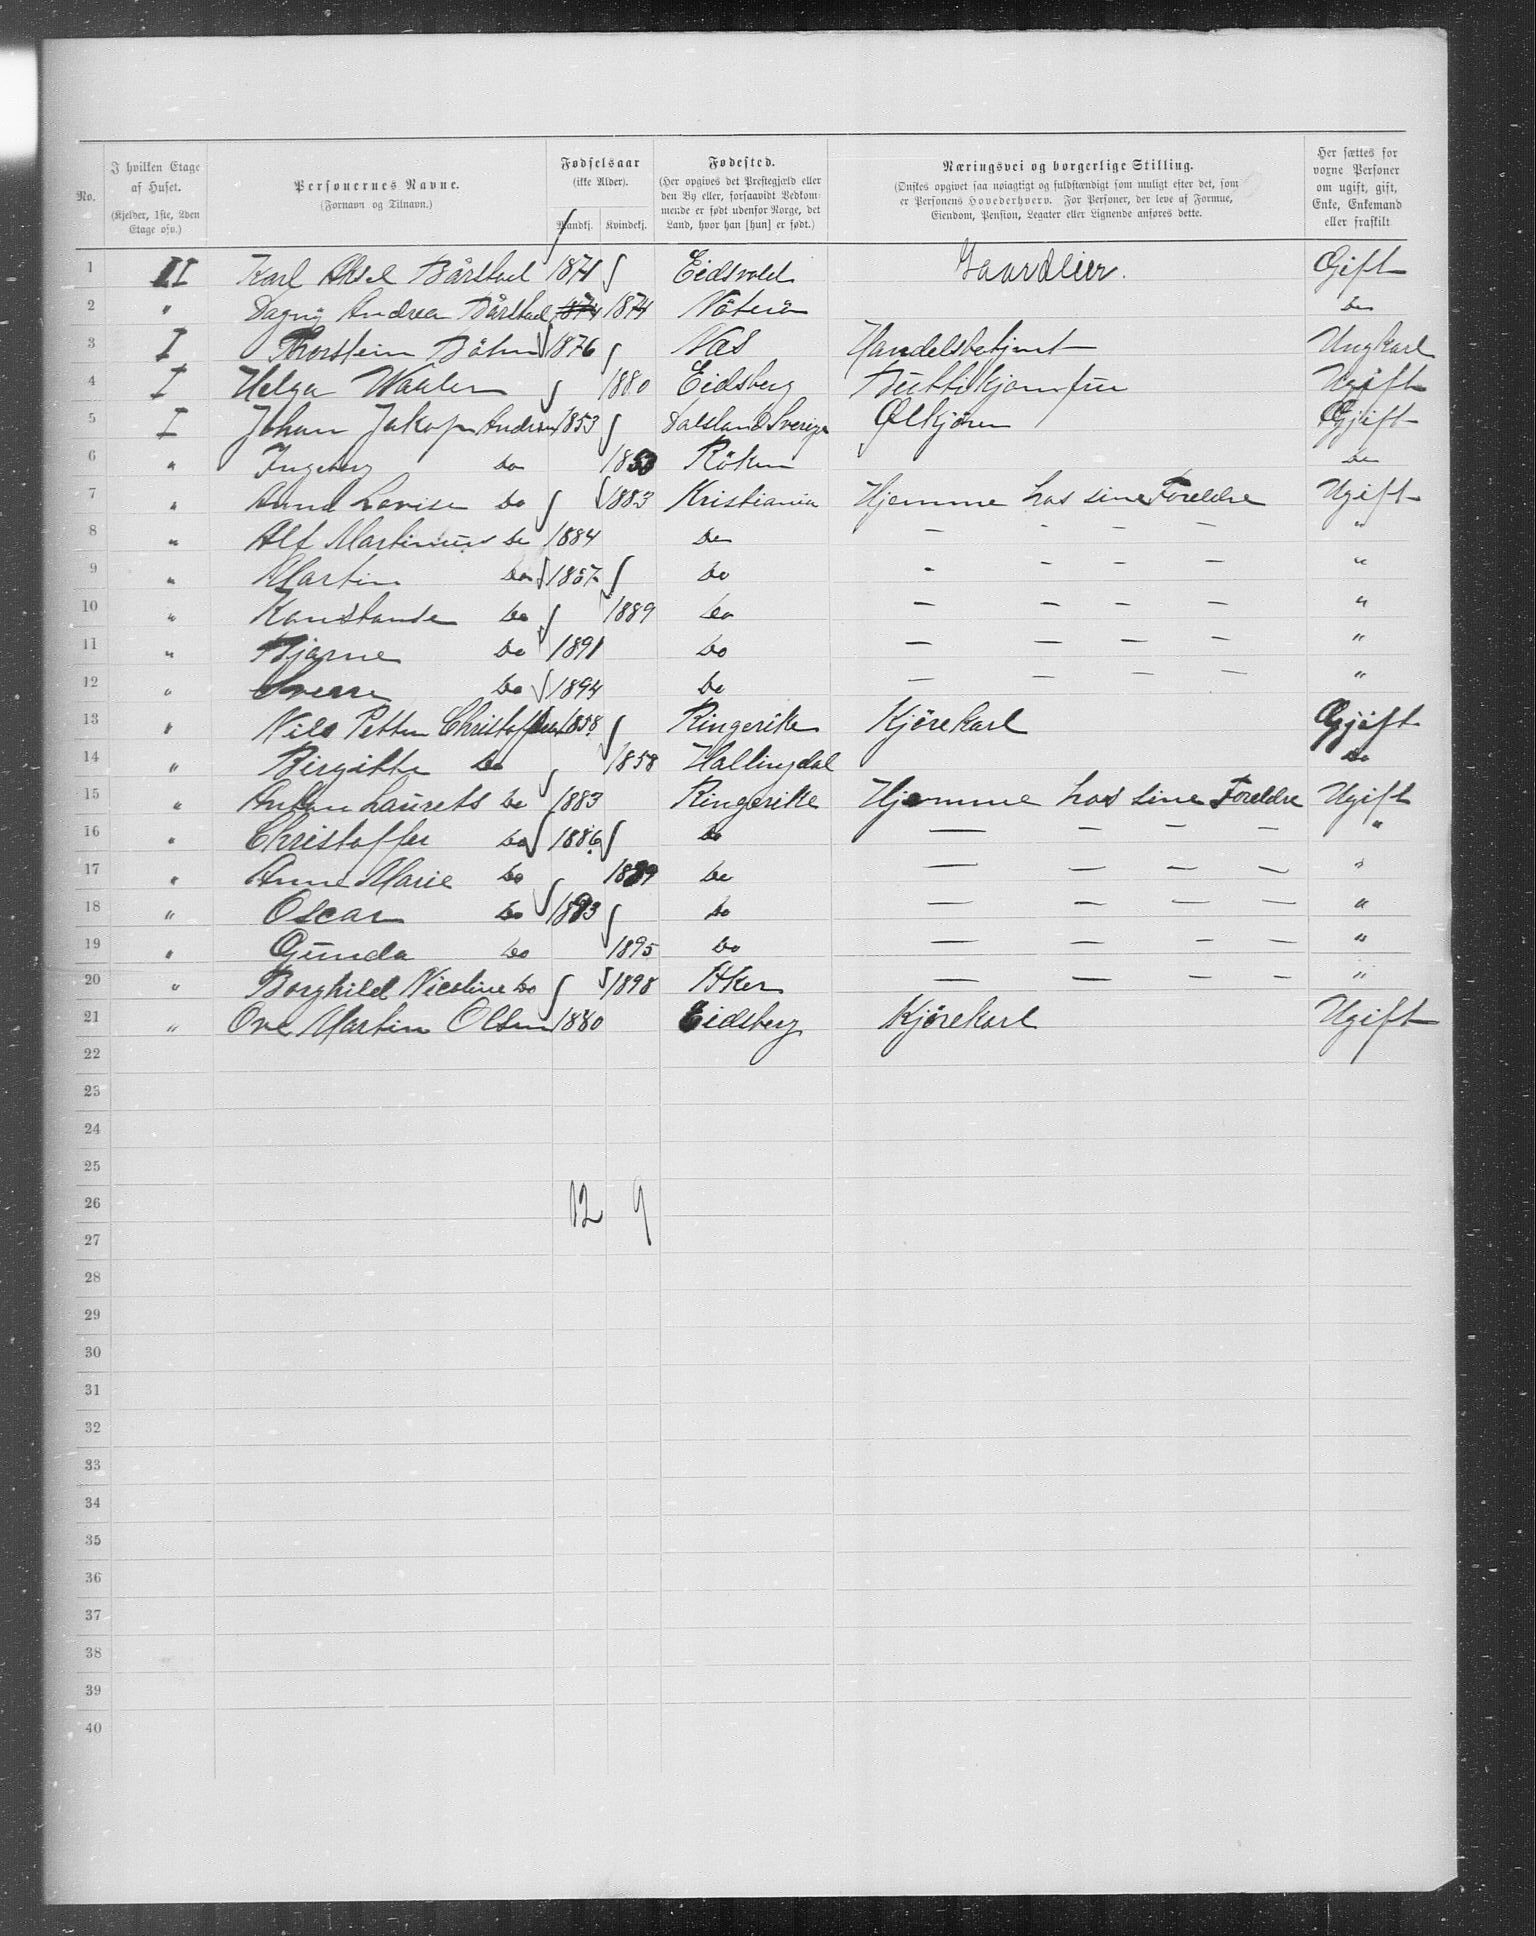 No. | I hvilken Etage af Huset. (Kjelder, 1ste, 2den Etage osv.) | Personernes Navne. (Fornavn og Tilnavn.) | Fødselsaar (ikke Alder). Mandkj. | Kvindekj. | Fødested. (Her opgives det Prestegjæld eller den By eller, forsaavidt Vedkommende er født udenfor Norge, det Land, hvor han [hun] er født.) | Næringsvei og borgerlige Stilling. (Ønskes opgivet saa nøiagtigt og fuldstændigt som muligt efter det, som er Personens Hovederhverv. For Personer, der leve af Formue, Eiendom, Pension, Legater eller Lignende anføres dette. | Her sættes for voxne Personer om ugift, gift, Enke, Enkemand eller fraskilt
1 II Karl Aksel Bårstad 1871 Eidsvold Gaardeier. Gift
2 " Dagny Andrea Bårstad 1874 1874 Nöterö Do
3 I Thorstein Böhn 1876 Næs Handelsbetjent Ungkarl
4 I Helga Waaler 1880 Eidsberg Buttikjomfru Ugift
5 I Johan Jakop Andersen 1853 Dalsland Sverige Ølkjörer Gjift
6 " Ingeborg Do 1850 Röken Do
7 " Anna Lovise Do 1883 Kristiania Hjemme hos sine Foreldre Ugift
8 " Alf Martinius Do 1884 Do — - — — "
9 " Martin Do 1887 Do - - — — "
10 " Konstanse Do 1889 Do — — — — "
11 " Bjarne Do 1891 Do — — — — "
12 " Sverre Do 1894 Do — — — — "
13 " Nils Petter Christoffersen 1858 Ringerike Kjørekarl Gjift
14 " Birgitte Do 1858 Hallingdal Do
15 " Anton Laurets Do 1883 Ringerike Hjemme hos sine Foreldre Ugift
16 " Christoffer Do 1886 Do — — — — "
17 " Anne Marie Do 1889 Do — — — — "
18 " Oscar Do 1893 Do — — — — "
19 " Gunda Do 1895 Do — — — — "
20 " Borghild Nicoline Do 1898 Aker — — — — "
21 " Ove Martin Olsen 1880 Eidsberg Kjørekarl Ugift
22
23
24
25
26 12 9
27
28
29
30
31
32
33
34
35
36
37
38
39
40